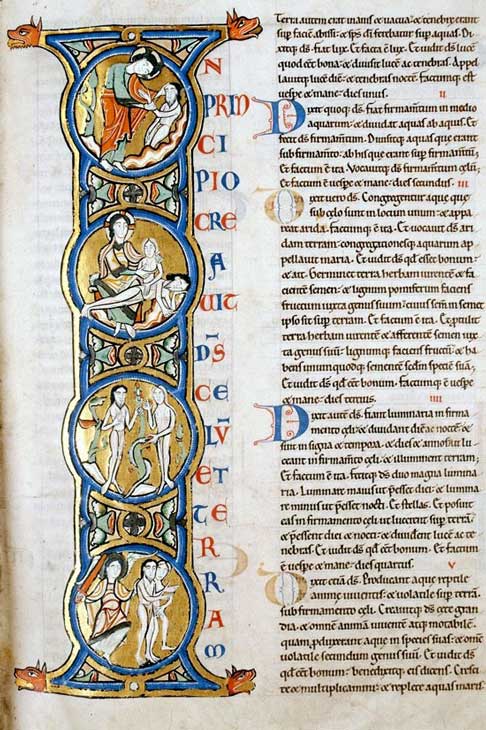 I
N
PRIN
CI
PIO
CRE
A
UIT
D̄S
CE
LV̄
ET
TE
R
R
A
M
Terra autem erat inanis & uacua: & tenebre erant
sup faciem abissi: & sp̄s dn̄i ferebatur sup aquas. Di-
xitq; d̄s. fiat lux. Et facta ē lux. Et uidit d̄s lucē
quod eet bona: & diuisit lucē ac tenebras. Appel-
lauitq; lucē diē: & tenebras noctē. factumq; est
uespe & mane: dies unus. II
Dixit quoq; d̄s. fiat firmam̄tum in medio
aquarum: & diuidat aquas ab aquis. Et
fecit d̄s firmam̄tum. Diuisitq; aquas que erant
sub firmam̄to: ab his que erant sup firmam̄tū.
Et factum ē ita. Vocauitq; d̄s firmam̄tum celū:
Et factum ē uespe & mane: dies secundus. III
Dixit uero d̄s. Congregentur aque que
sub celo sunt in locum unum: & appa-
reat arida. factumq; ē ita. Et uocauit d̄s ari-
dam terram: congregationesq; aquarum ap-
pellauit maria. Et uidit d̄s qd̄ eet bonum:
& ait. Germinet terra herbam uirentē & fa-
cientē semen: & lignum pomiferum faciens
fructum iuxta genus suum: cuius sem̄ in semet
ipso sit sup terram. Et factum ē ita. Et ptulit
terra herbam uirentē & afferentē semen iux-
ta genus suū: lignumq; faciens fructū: & ha-
bens unumquodq; sementē scdm̄ speciē suā.
Et uidit d̄s qd̄ eet bonum. factumq; ē uespe
& mane: dies tercius. IIII
Dixit autē d̄s. fiant luminaria in firma-
mento celi: & diuidant diē ac noctē: &
sint in signa & tempora. & dies & annos: ut lu-
ceant in firmam̄to celi. & illuminent terram:
Et factum ē ita. fecitq; d̄s duo magna lumina-
ria. Luminare maius ut p̄esset diei: & lumina-
re minus ut p̄esset nocti. Et stellas. Et posuit
eas in firmamento celi ut lucerent sup terrā:
& p̄essent diei & nocti: & diuiderent lucē ac te-
nebras. Et uidit d̄s qd̄ eet bonum. Et factum
ē uespe & mane: dies quartus. V
Dixit etiā d̄s. Producant aque reptile
anime uiuentis: & uolatile sup terrā.
sub firmamento celi. Creauitq; d̄s cete gran-
dia: & omnē animā uiuentē atq; motabilē.
quam pduxerant aque in species suas: & omē
uolatile secundum genus suū. Et uidit d̄s
qd̄ eet bonum: benedixitq; eis dicens. Cresci-
te & multiplicamini: & replete aquas maris.